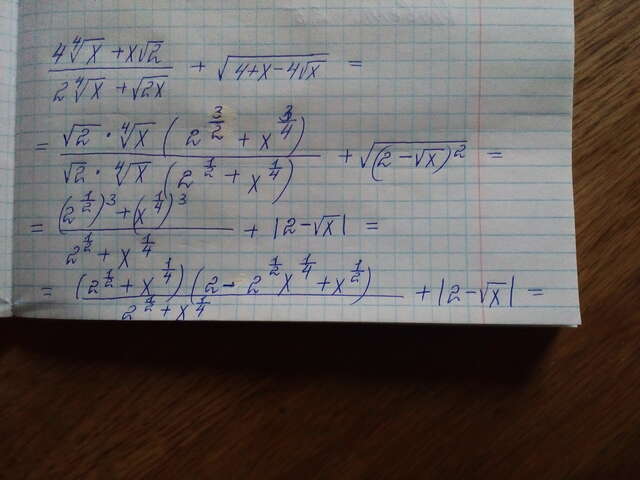 (4∜x + x√2)/(2∜x + √(2x)) + √(4+x−4√x) =
= (√2 · ∜x (2^(3/2) + x^(3/4)))/(√2 · ∜x (2^(1/2) + x^(1/4))) + √((2−√x)^2) =
= ((2^(1/2))^3 + (x^(1/4))^3)/(2^(1/2) + x^(1/4)) + |2−√x| =
= ((2^(1/2) + x^(1/4))(2 − 2^(1/2) x^(1/4) + x^(1/2)))/(2^(1/2) + x^(1/4)) + |2−√x| =